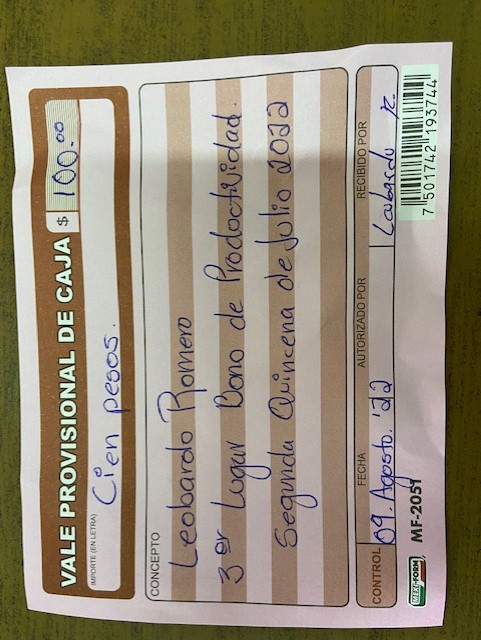 VALE PROVISIONAL DE CAJA $ 100.00
IMPORTE (EN LETRA)
Cien pesos.
CONCEPTO
Leobardo Romero
3er Lugar Bono de Productividad.
Segunda Quincena de Julio 2022
CONTROL FECHA AUTORIZADO POR RECIBIDO POR
09. Agosto. '22 Leobardo R.
MEXI-FORM MF-2051
7 501742 193744